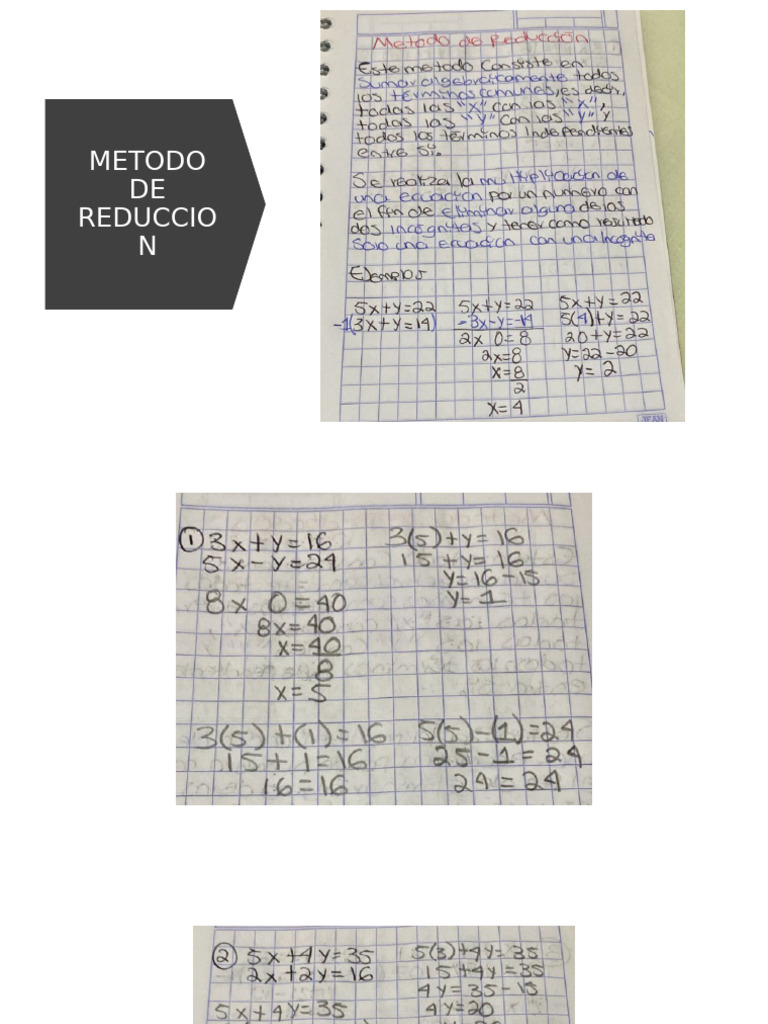 METODO
DE
REDUCCIO
N
Metodo de Reducción
Este metodo consiste en
Sumar algebraicamente todos
los terminos comunes, es decir,
todas las "X" con las "X",
todas las "Y" con las "Y" y
todos los términos Independientes
entre Si.
Se realiza la multiplicación de
una ecuación por un numero con
el fin de eliminar alguna de las
dos incognitas y tener como resultado
Solo una ecuación con una incognita
Ejemplos
5x+y=22
-1(3x+y=14)
5x+y=22
-3x-y=-14
2x 0=8
2x=8
x=8
2
x=4
5x+y=22
5(4)+y=22
20+y=22
y=22-20
y=2
JEAN
1 3x+y=16
5x-y=24
8x 0=40
8x=40
x=40
8
x=5
3(5)+y=16
15+y=16
y=16-15
y=1
3(5)+(1)=16
15+1=16
16=16
5(5)-(1)=24
25-1=24
24=24
2 5x+4y=35
2x+2y=16
5x+4y=35
5(3)+4y=35
15+4y=35
4y=35-15
4y=20